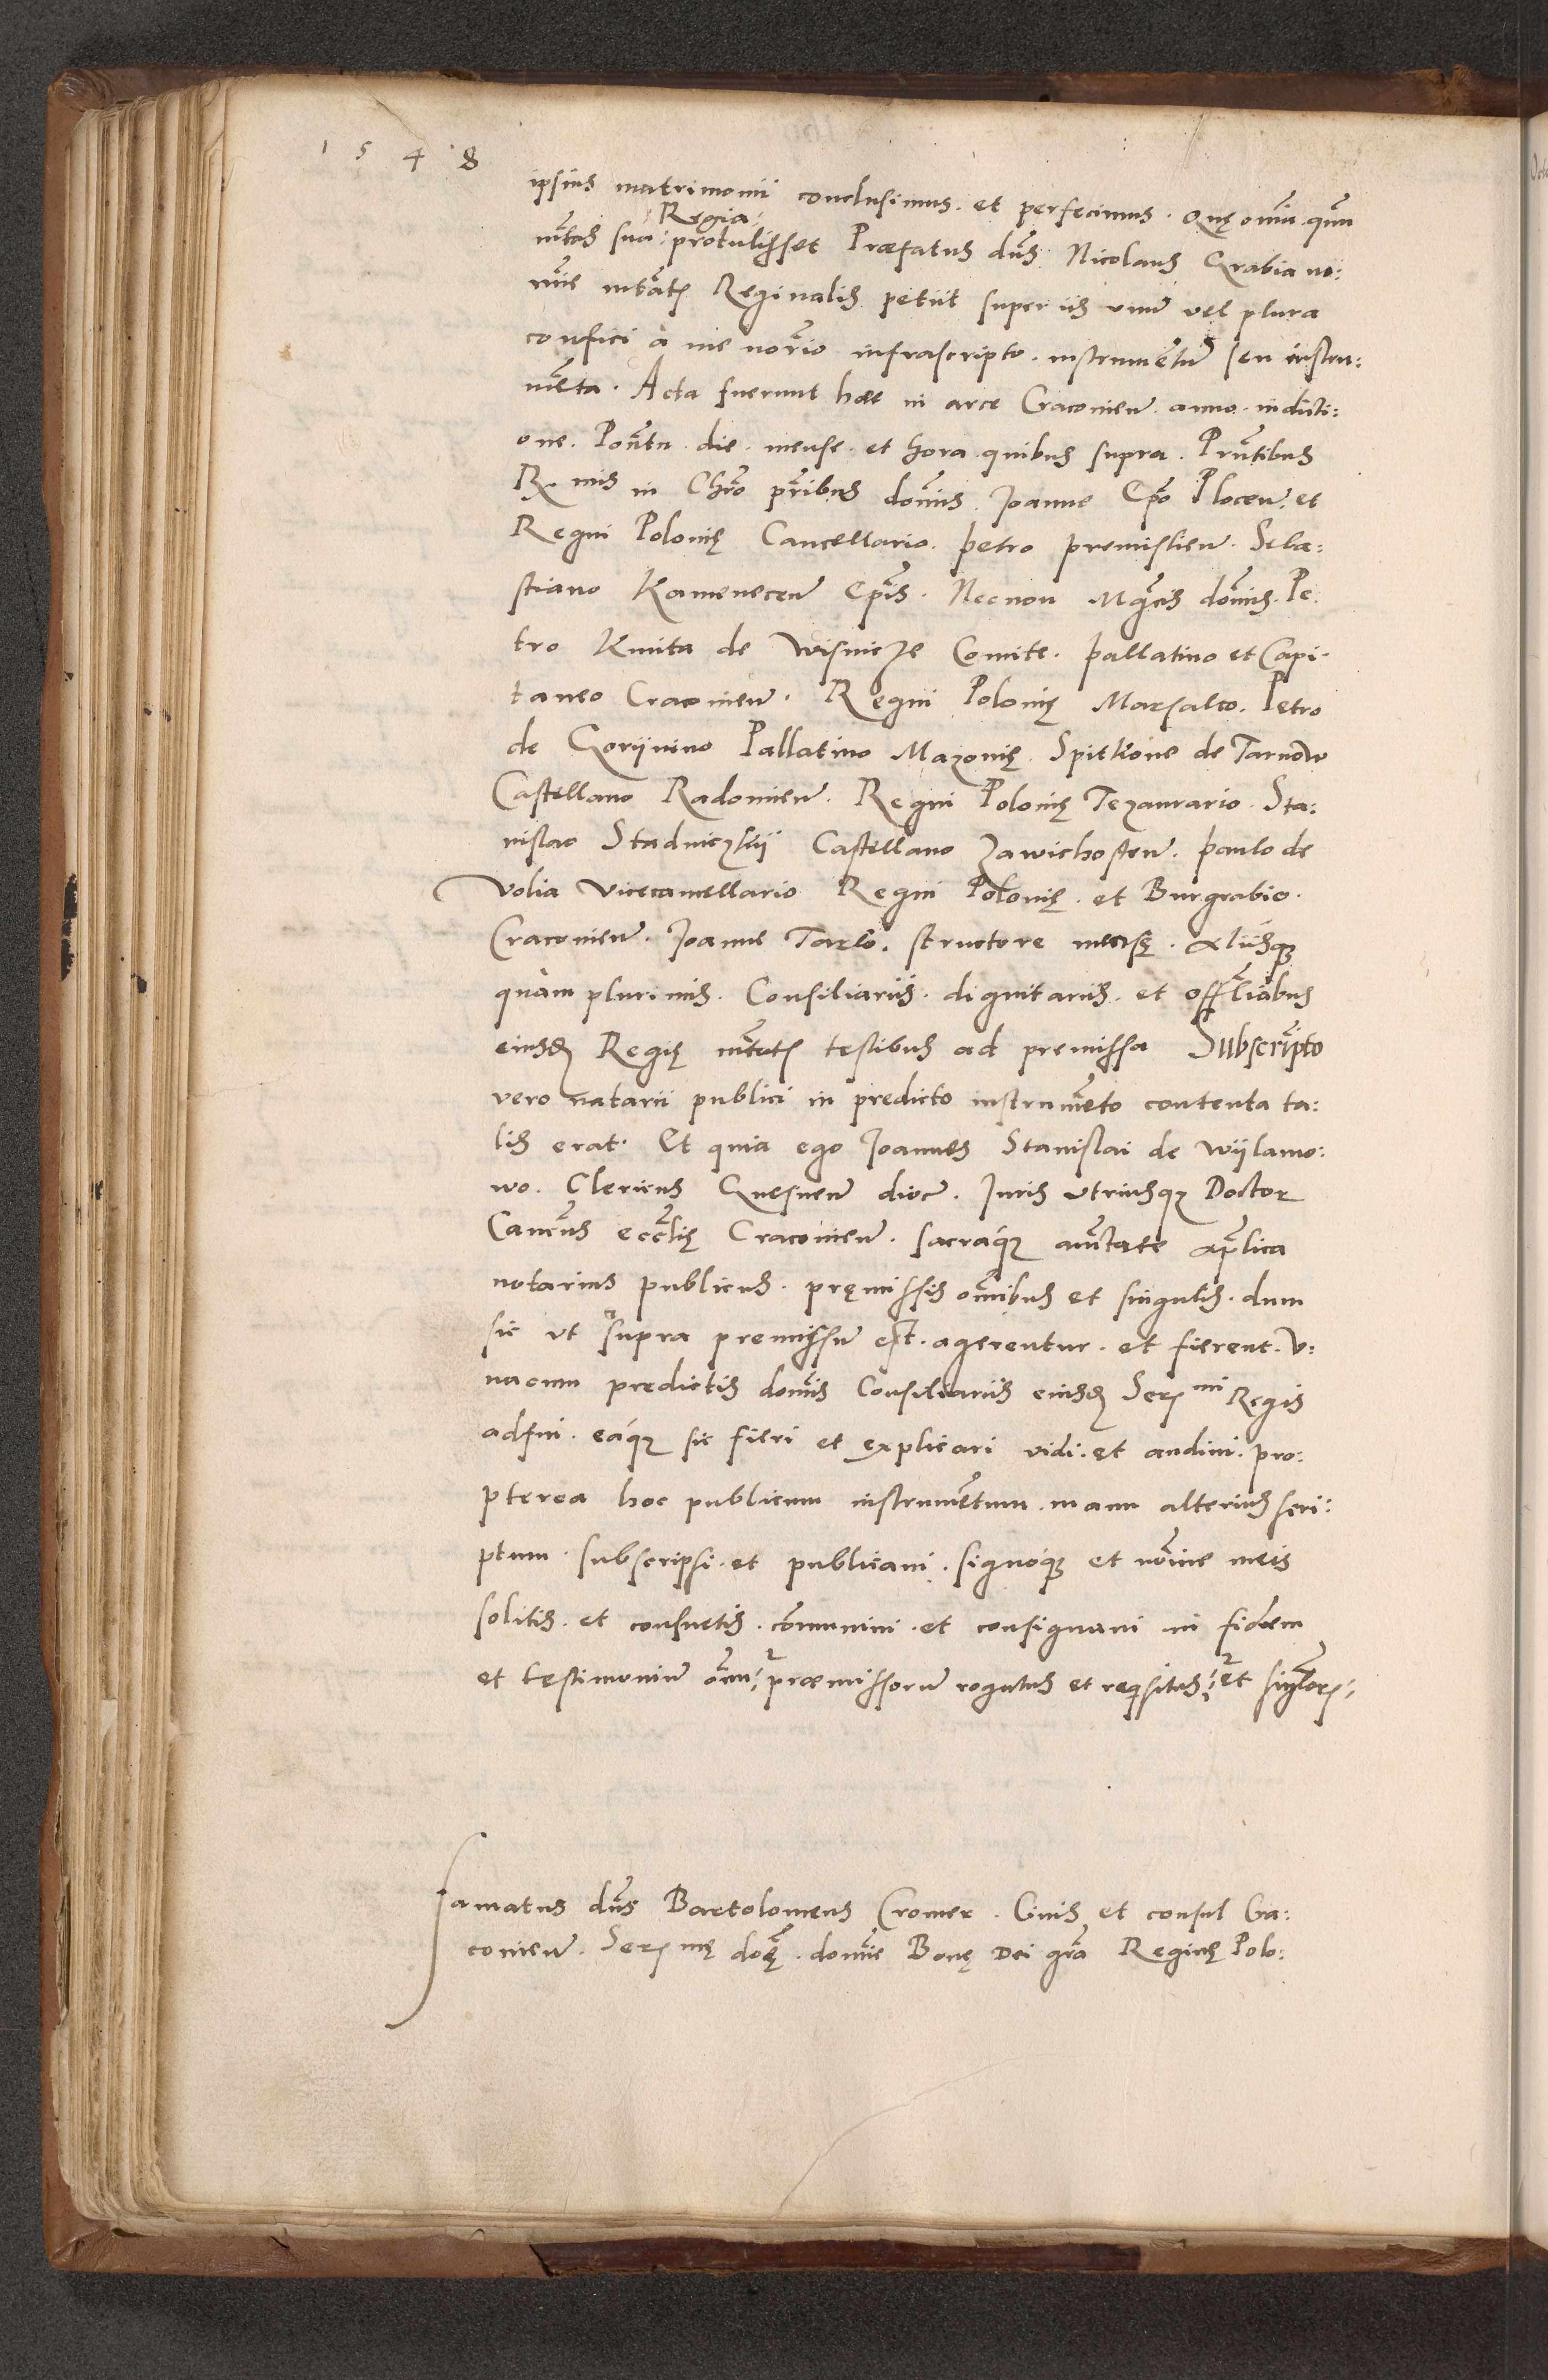 1 5 4 8
ipsius matrimonii conclusimus. et perfecimus. Quę omnia quum
Regia
mtas sua protulisset Præfatus dns Nicolaus Grabia no:
mine mtatis Reginalis petiit super iis unum vel plura
confici à me norio infrascripto. instrumentum seu instru:
menta. Acta fuerunt hæc in arce Cracouien. anno. indicti:
one. Pontu. die. mense. et hora quibus supra. Prntibus
R. mis in Chro pribus domis. Joanne Epo Plocen. et
Regni Polonię Cancellario. Petro premislien. Seba:
stiano Kamenecen Epis. Necnon Mgcis domis. Pe
tro Kmita de Wisnicze Comite. pallatino et Capi-
taneo Cracouien. Regni Polonię Marsalco. Petro
de Gorynino Pallatino Mazouię. Spitkone de Tarnow
Castellano Radomien. Regni Polonię Tezaurario. Sta:
nislao Stadniczkij Castellano Zawichosten. paulo de
Volia Vicecancellario Regni Polonię. et Burgrabio.
Cracouien. Joanne Tarlo. structore mensę. Aliisque
quàm plurimis. Consiliariis. dignitariis. et offlibus
eiusd Regię mtatis testibus ad premissa Subscriptio
vero notarii publici in predicto instrumeto contenta ta:
lis erat. Et quia ego Joannes Stanislai de Wijlamo:
wo. Clericus Gnesnen dioc. Juris utriusque Doctor
Canicus ecclię Cracouien. sacráque auctate aplica
notarius publicus. pręmissis omibus et singulis. dum
sic ut supra premissum est. agerentur. et fierent. v:
nacum predictis domis Consiliariis eiusd Sermi Regis
adfui. eáque sic fieri et explicari vidi. et audiui. pro:
pterea hoc publicum instrumentum. manu alterius scri:
ptum. subscripsi. et publicaui. signoque et nomine meis
solitis. et consuetis. communiui. et consignaui in fidem
et testimonium omnium præmissorum rogatus et requisitus. et singlorum
Famatus dns Bartolomeus Cromer. Ciuis et consul Cra:
couien. Sermę doę. domine Bonę Dei gra Reginę Polo: